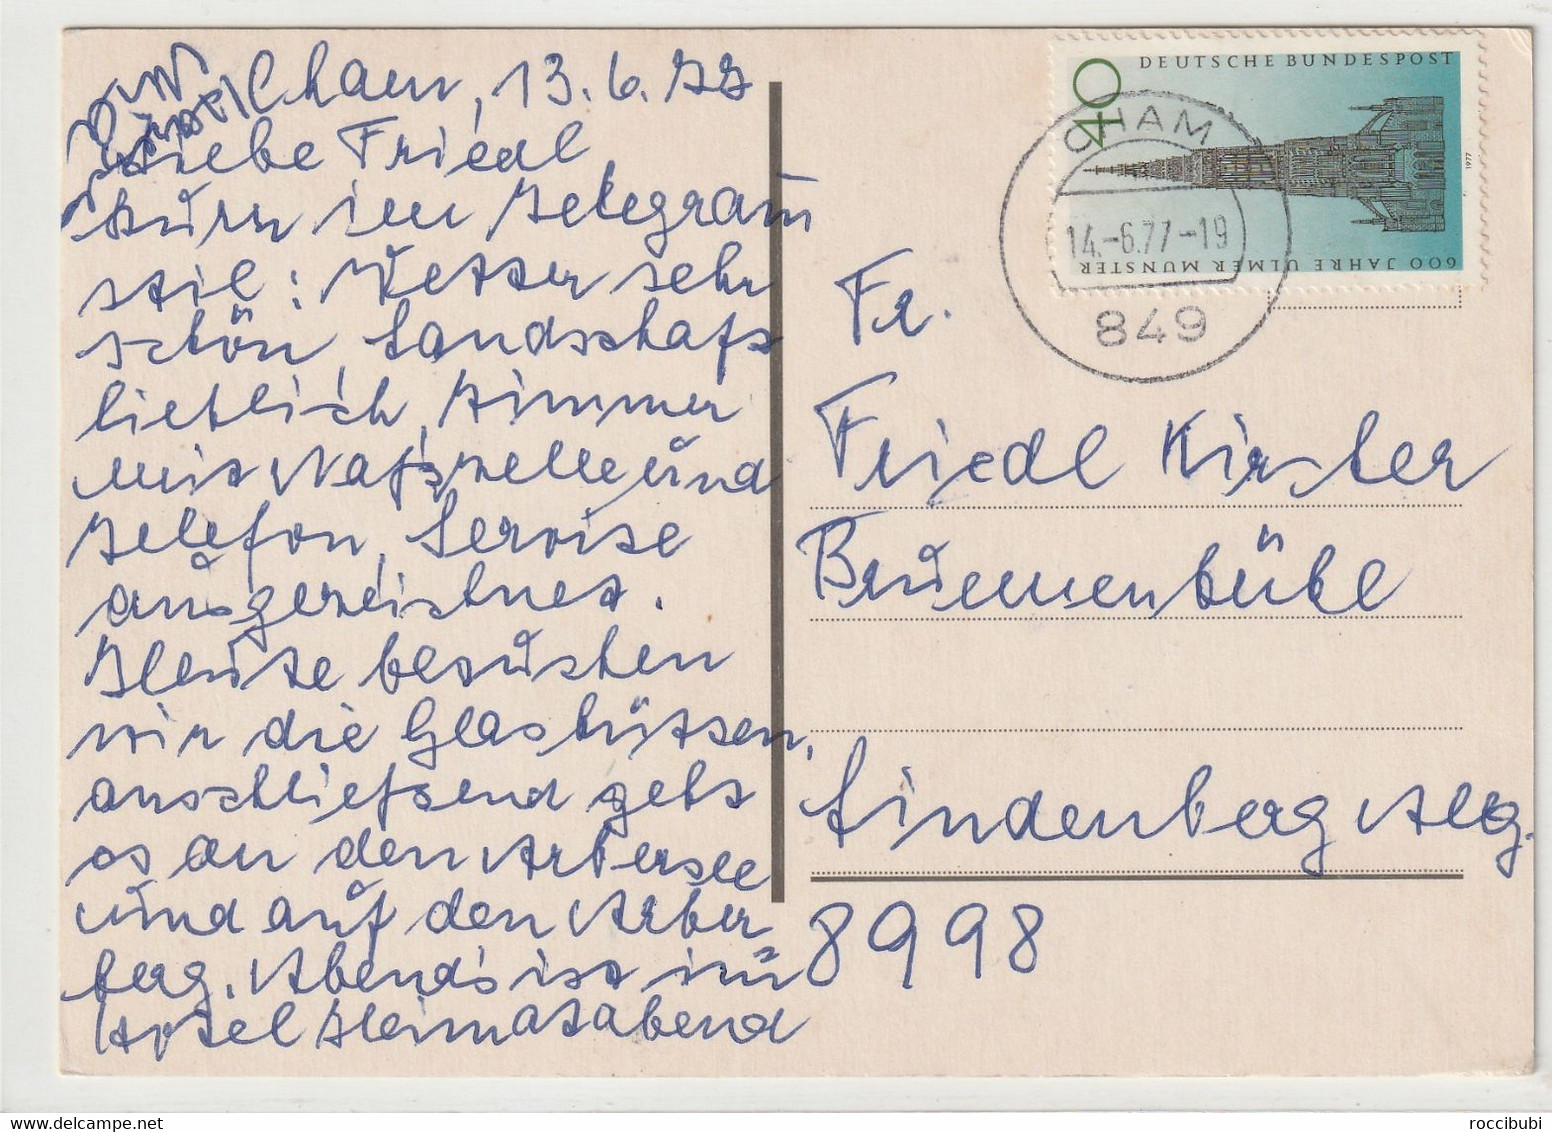 Cham, 13.6.77
Liebe Friedl
kurz im Telegramm
stil: Wetter sehr
schön, Landschaft
lieblich, Zimmer
mit Naßzelle und
Telefon, Servise
ausgezeichnet.
Heute besuchen
wir die Glashütten,
anschließend gehts
es an den Arbersee
und auf den Arber
berg. Abends ist im
Hotel Heimatabend
DEUTSCHE BUNDESPOST
40
1977
600 JAHRE ULMER MÜNSTER
CHAM
14.-6.77-19
849
Fr.
Friedl Kirster
Lindenberg Allg.
8998
roccibubi